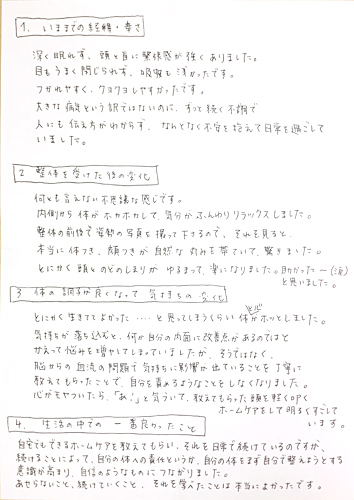 1. いままでの経緯・辛さ
深く眠れず、頭と首に緊張感が強くありました。
目もうまく閉じられず、呼吸も浅かったです。
つかれやすく、クヨクヨしやすかったです。
大きな病気という訳ではないのに、ずっと続く不調で
人にも伝え方がわからず、なんとなく不安を抱えて日常を過ごして
いました。
2 整体を受けた後の変化
何とも言えない不思議な感じです。
内側から体がホカホカして、気分がふんわりリラックスしました。
整体の前後で姿勢の写真を撮って下さるので、それを見ると
本当に体つき、顔つきが自然な丸みを帯びていて、驚きました。
とにかく頭とのどのしまりがゆるまって、楽になりました。助かったー(涙)
と思いました。
3 体の調子が良くなって 気持ちの変化
とにかく生きててよかった‥‥と思ってしまうくらい体がホッとしました。
気持ちが落ち込むと、何か自分の内面に改善点があるのではと
かえって悩みを増やしてしまっていましたが、そうではなく、
脳からの血流の問題で気持ちに影響が出ていることを丁寧に
教えてもらったことで、自分を責めるようなことをしなくなりました。
心がモヤついたら、「あ!」と気づいて、教えてもらった頭を軽くほぐす
ホームケアをして明るくすごして
います。
4. 生活の中での 一番良かったこと
自宅でもできるホームケアを教えてもらい、それを日常で続けているのですが、
続けることによって、自分の体への責任というか、自分の体をまず自分で整えようとする
意識が高まり、自信のようなものにつながりました。
あせらないこと、続けていくこと、それを学べたことは本当によかったです。